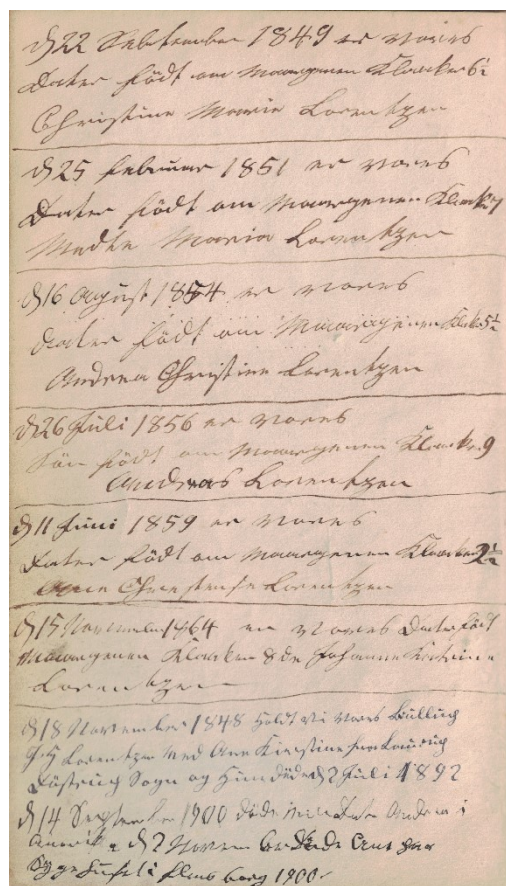 d 22 September 1849 er vores
Dater Født om Maargenen Klocker 6½
Christine Marie Lorentzen
d 25 Februar 1851 er vores
Dater Født om Maargenen Klocke 7
Medke Maria Lorentzen
d 16 August 1854 er vores
Dater Født om Maargenen Klocke 5½
Andrea Christine Lorentzen
d 26 Juli 1856 er vores
Søn Født om Maargenen Klocke 9
Andreas Lorentzen
d 11 Juni 1859 er vores
Dater Født om Maargenen Klocke 2½
Christense Lorentzen
d 15 November 1864 er Vores Dater Født
Maargenen Klocken 8 Johanne Katrine
Lorentzen
d 18 November 1848 holdt vi vores Bullup
Lorentzen Med Ane Kirstine
Sogn og Hun døde d 2 Juli 1892
d 14 September 1900 døde min Dater Andrea i
d 2 Novem døde
Sygehuset i Flensborg 1900